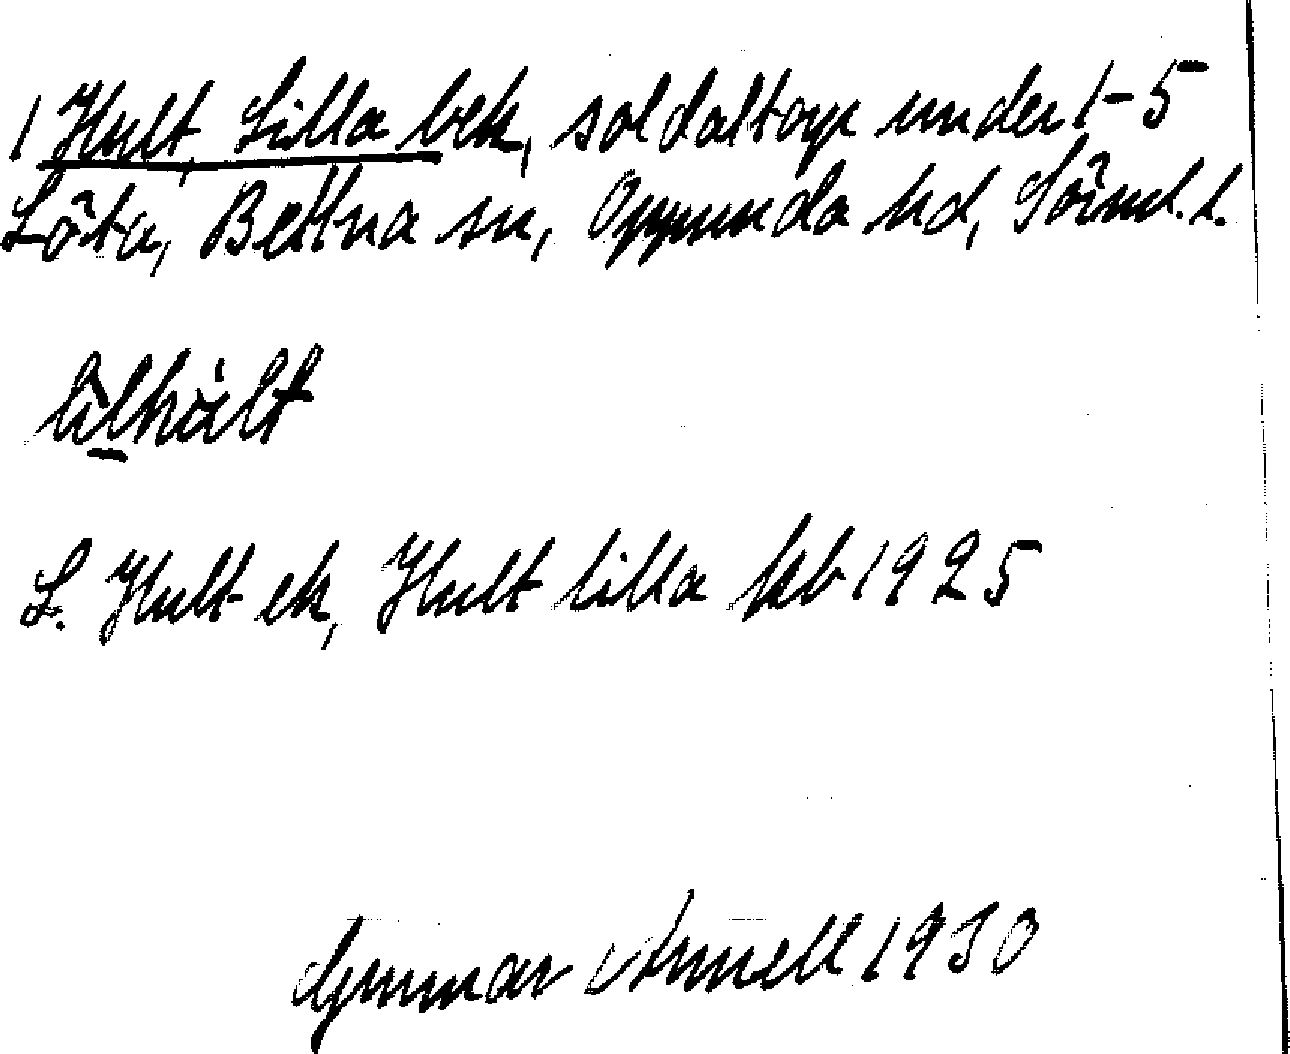 1 Hult, Lilla bek, soldattorp under 1-5
Löta, Bettna sn, Oppunda hd, Sörml. l.
lilhult
L. Hult ek, Hult lilla kb 1925
Gunnar Arnell 1930